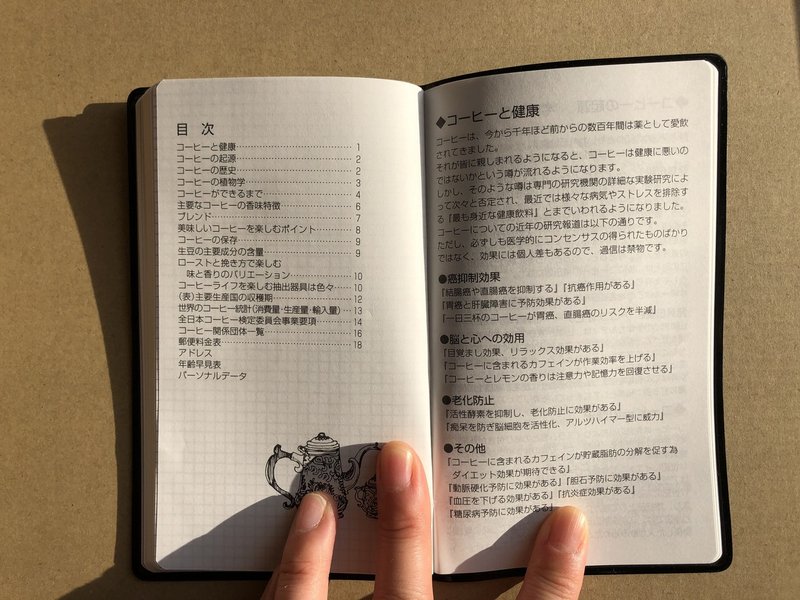 目 次
コーヒーと健康 1
コーヒーの起源 2
コーヒーの歴史 2
コーヒーの植物学 3
コーヒーができるまで 4
主要なコーヒーの香味特徴 6
ブレンド 7
美味しいコーヒーを楽しむポイント 8
コーヒーの保存 9
生豆の主要成分の含量 9
ローストと挽き方で楽しむ
味と香りのバリエーション 10
コーヒーライフを楽しむ抽出器具は色々 10
(表)主要生産国の収穫期 12
世界のコーヒー統計(消費量・生産量・輸入量) 13
全日本コーヒー検定委員会事業要項 14
コーヒー関係団体一覧 16
郵便料金表 18
アドレス
年齢早見表
パーソナルデータ
◆コーヒーと健康
コーヒーは、今から千年ほど前からの数百年間は薬として愛飲
されてきました。
それが皆に親しまれるようになると、コーヒーは健康に悪いの
ではないかという噂が流れるようになります。
しかし、そのような噂は専門の研究機関の詳細な実験研究によ
って次々と否定され、最近では様々な病気やストレスを排除す
る『最も身近な健康飲料』とまでいわれるようになりました。
コーヒーについての近年の研究報道は以下の通りです。
ただし、必ずしも医学的にコンセンサスの得られたものばかり
ではなく、効果には個人差もあるので、過信は禁物です。
●癌抑制効果
『結腸癌や直腸癌を抑制する』『抗癌作用がある』
『胃癌と肝臓障害に予防効果がある』
『一日三杯のコーヒーが胃癌、直腸癌のリスクを半減』
●脳と心への効用
『目覚まし効果、リラックス効果がある』
『コーヒーに含まれるカフェインが作業効率を上げる』
『コーヒーとレモンの香りは注意力や記憶力を回復させる』
●老化防止
『活性酵素を抑制し、老化防止に効果がある』
『痴呆を防ぎ脳細胞を活性化、アルツハイマー型に威力』
●その他
『コーヒーに含まれるカフェインが貯蔵脂肪の分解を促す為
ダイエット効果が期待できる』
『動脈硬化予防に効果がある』『胆石予防に効果がある』
『血圧を下げる効果がある』『抗炎症効果がある』
『糖尿病予防に効果がある』